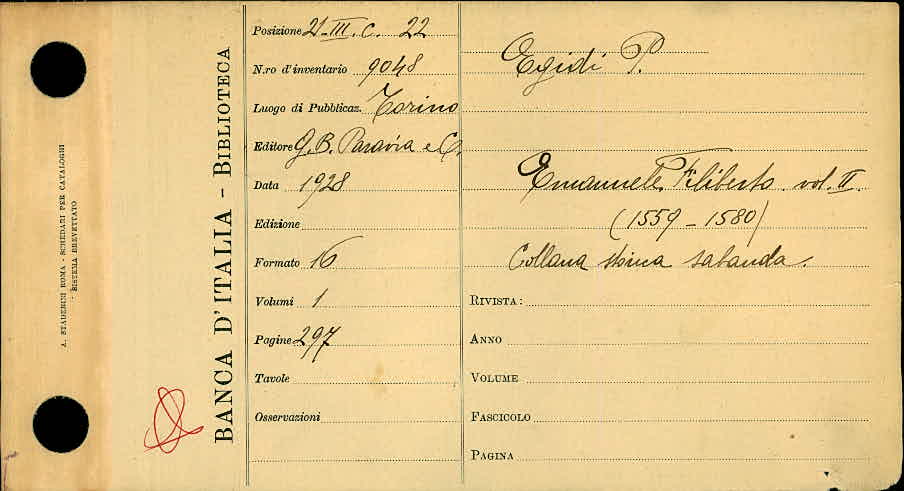 A. STADERINI ROMA - SCHEDARI PER CATALOGHI
SISTEMA BREVETTATO
BANCA D'ITALIA - BIBLIOTECA
Posizione 21-III. C. 22
N.ro d'inventario 9048
Luogo di Pubblicaz. Torino
Editore G. B. Paravia e C.
Data 1928
Edizione
Formato 16
Volumi 1
Pagine 297
Tavole
Osservazioni
Egidi P.
Emanuele Filiberto vol. II.
(1559 - 1580)
Collana storica sabauda.
RIVISTA:
ANNO
VOLUME
FASCICOLO
PAGINA